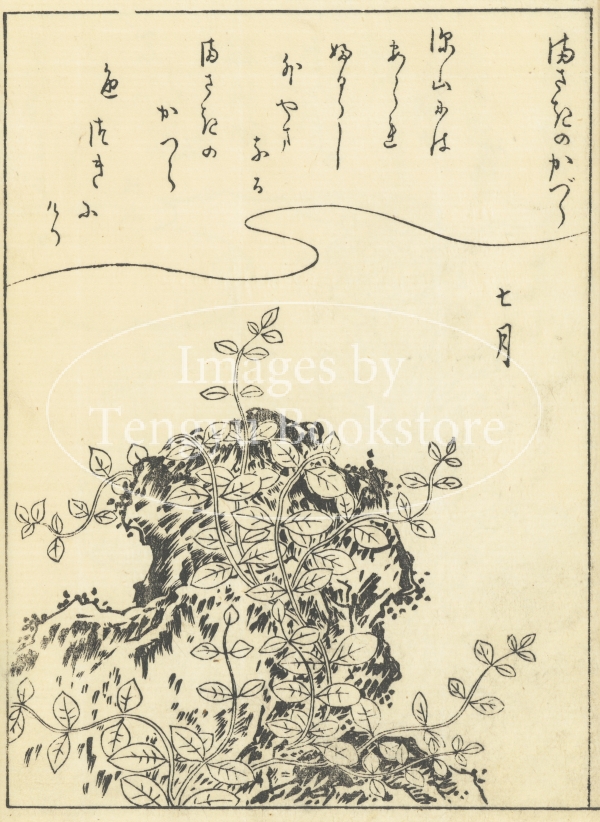 まさきのかづら
深山には
あられ
ふるらし
外やま
なる
まさきの
かつら
色つきに
けり
七月
Images by
Bookstore